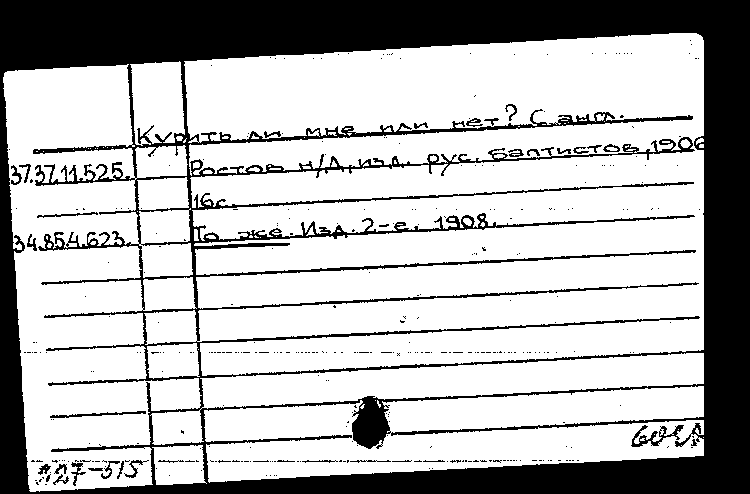 Курить ли мне или нет? С англ.
37.37.11.525. Ростов н/Д, изд. рус. баптистов, 1906
16с.
34.854.623. То же. Изд. 2-е. 1908.
127-515